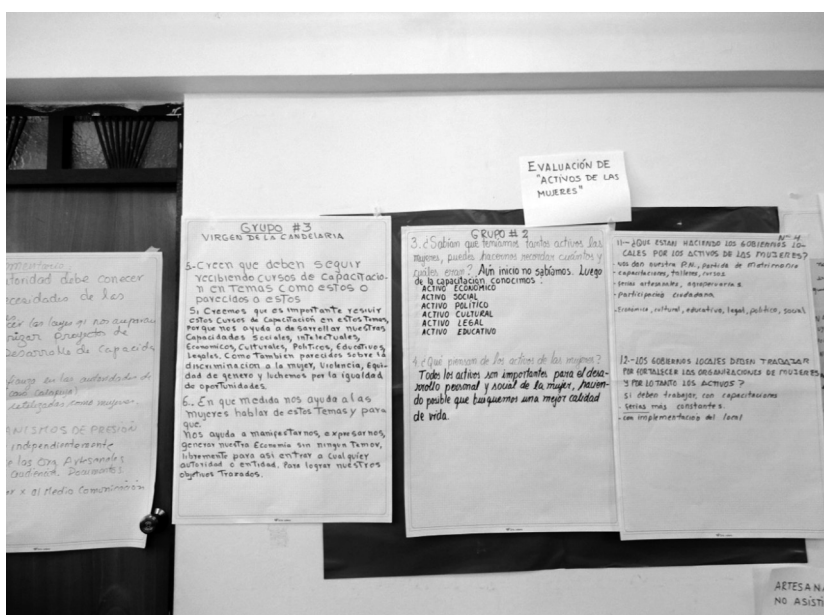 EVALUACIÓN DE
"ACTIVOS DE LAS
MUJERES"
autoridad debe conecer
necesidades de los
Proyecto de
Desarrollo de Capacida
MECANISMOS DE PRESIÓN
independientemente
los Org Artesanales
Documentos
x al Medio Comunicación
GRUPO #3
VIRGEN DE LA CANDELARIA
5.-Creen que deben seguir
recibiendo cursos de capacitacio-
n en Temas como estos o
parecidos a estos
5, Creemos que es importante resivir
estos Cursos de Capacitación en estos Temas,
Porque nos ayuda a desarrollar nuestras
Capacidades Sociales, intelectuales,
Economicos, Culturales, Politicos, Educativos,
Legales, Como Tambien parecidos sobre la
discriminacion a la mujer, Violencia, Equi-
dad de genero y luchemos por la igualdad
de oportunidades.
6.. En que medida nos ayuda a las
mujeres hablar de estos Temas y para
que
Nos ayuda a manifestarnos, expresarnos,
generar nuestra Economia sin ningun Temor,
libremente para asi entrar a Cualquier
autoridad o entidad. Para lograr nuestros
objetivos Trazados.
GRUPO # 2
3. ¿Sabian que teniamos tantos activos las
mujeres, pueden hacernos recordar cuántos y
cuáles eran? Aun inicio no sabíamos. Luego
de la capacitación conocimos :
ACTIVO ECONÓMICO
ACTIVO SOCIAL
ACTIVO POLÍTICO
ACTIVO CULTURAL
ACTIVO LEGAL
ACTIVO EDUCATIVO
4. ¿Qué piensan de los activos de las mujeres?
Todos los activos son importantes para el desa-
rrollo personal y social de la mujer, hacien-
do posible que busquemos una mejor calidad
de vida.
Nº 4
11-- ¿QUE ESTAN HACIENDO LOS GOBIERNOS LO-
CALES POR LOS ACTIVOS DE LAS MUJERES?
nos dan nuestra P.N., partida de Matrimonio
- capacitaciones, talleres, cursos
- ferias artesanales, agropecuarias
- participación ciudadana.
Economico, cultural, educativo, legal, politico, social
12-LOS GOBIERNOS LOCALES DEBEN TRABAJAR
POR FORTALECER LAS ORGANIZACIONES DE MUJERES
Y POR LO TANTO LOS ACTIVOS ?
si deben trabajar, con capacitaciones
- ferias mas constantes.
- con implementación del local
ARTESANA
NO ASISTI